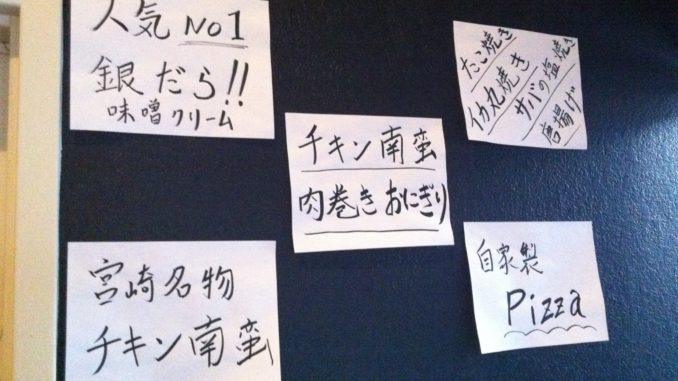 人気 No1
銀だら!!
味噌クリーム
チキン南蛮
肉巻きおにぎり
たこ焼き
イカ丸焼き
サバの塩焼き
唐揚げ
宮崎名物
チキン南蛮
自家製
Pizza